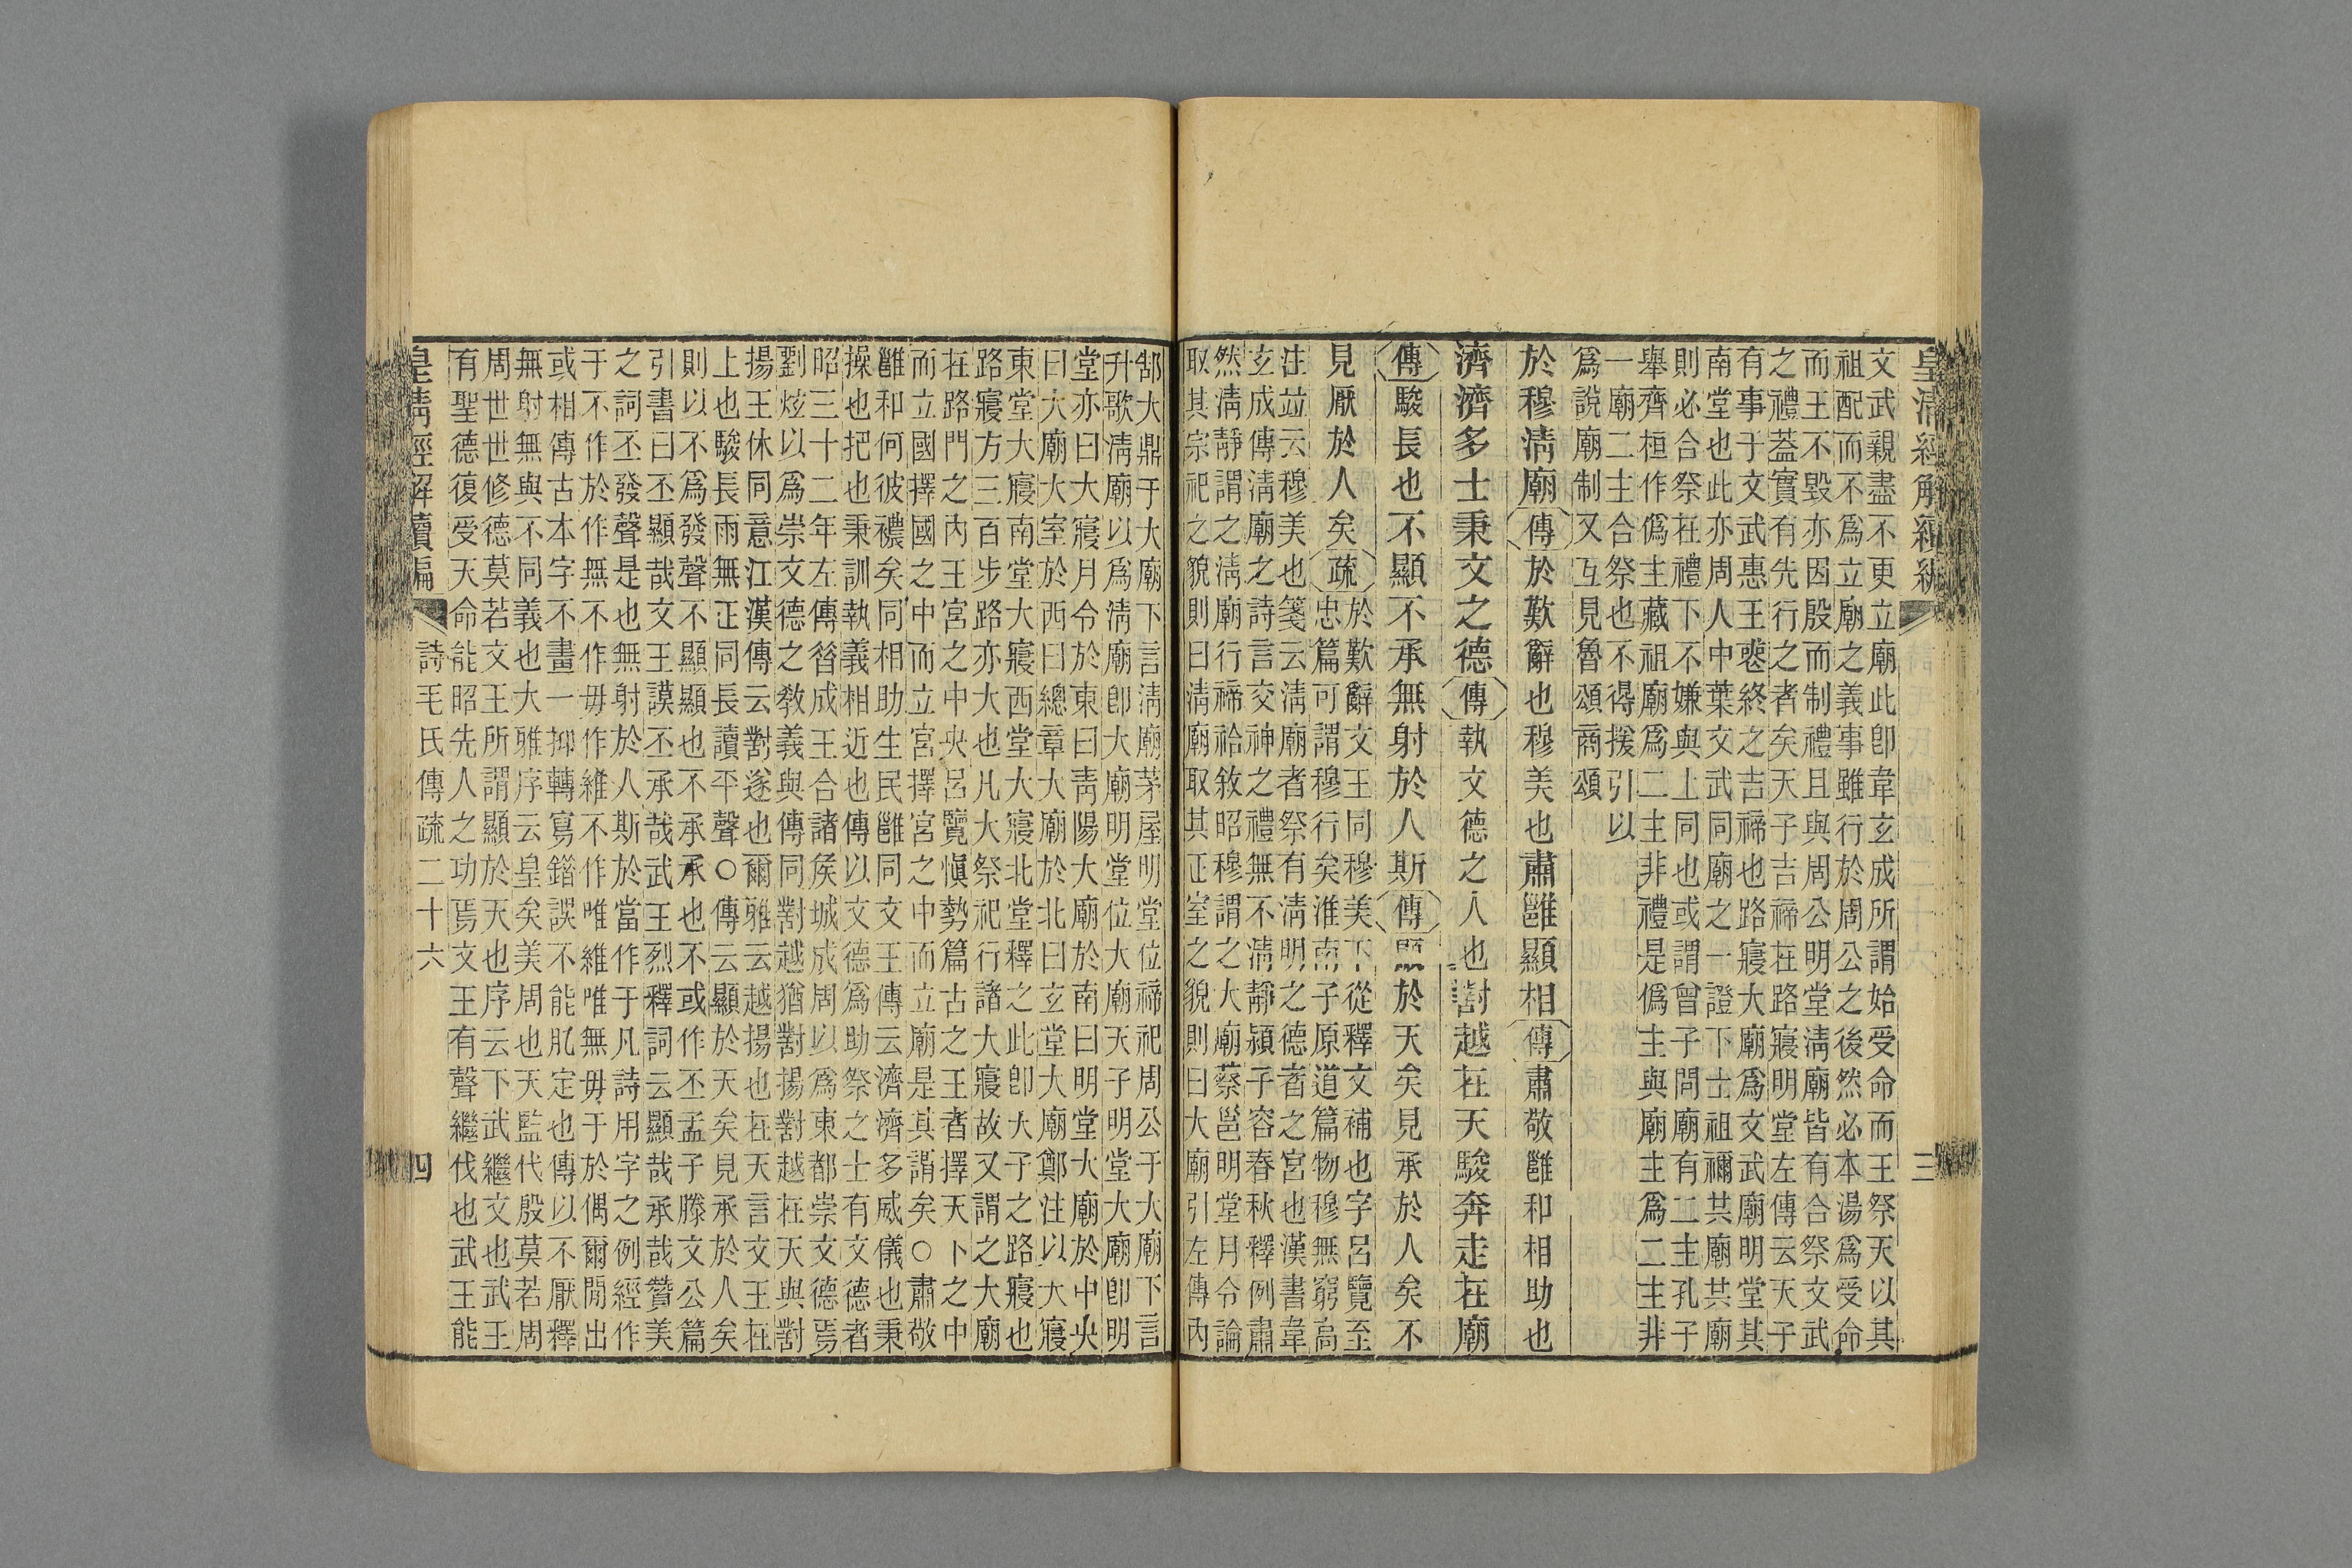 文武親盡不更立廟此卽韋玄成所謂始受命而王祭天以其
祖配而不爲立廟之義事雖行於周公之後然必本湯爲受命
而王不毀亦因殷而制禮且與周公明堂淸廟皆有合祭文武
之禮蓋實有先行之者矣天子吉禘在路寢明堂左傳云天子
有事于文武惠王襚終之吉禘也路寢大廟爲文武廟明堂其
南堂也此亦周人中葉文武同廟之一證下士祖禰共廟其廟
則必合祭在禮下不嫌與上同也或謂曾子問廟有二主孔子
舉齊桓作僞主藏祖廟爲二主非禮是僞主與廟主爲二主非
一廟二主合祭也不得援引以
爲說廟制又互見魯頌商頌
於穆淸廟傳於歎辭也穆美也肅雝顯相傳肅敬雝和相助也
濟濟多士秉文之德傳執文德之人也對越在天駿奔走在廟
傳駿長也不顯不承無射於人斯傳顯於天矣見承於人矣不
見厭於人矣疏於歎辭文王同穆美下從釋文補也字呂覽至
忠篇可謂穆行矣淮南子原道篇物穆無窮高
注竝云穆美也箋云淸廟者祭有淸明之德者之宮也漢書韋
玄成傳淸廟之詩言交神之禮無不淸靜潁子容春秋釋例肅
然淸靜謂之淸廟行禘祫敘昭穆謂之大廟蔡邕明堂月令論
取其宗祀之貌則曰淸廟取其正室之貌則曰大廟引左傳內
郜大鼎于大廟下言淸廟茅屋明堂位禘祀周公于大廟下言
升歌淸廟以爲淸廟卽大廟明堂位大廟天子明堂大廟卽明
堂亦曰大寢月令於東曰靑陽大廟於南曰明堂大廟於中央
曰大廟大室於西曰總章大廟於北曰玄堂大廟鄭注以大寢
東堂大寢南堂大寢西堂大寢北堂釋之此卽大子之路寢也
路寢方三百步路亦大也凡大祭祀行諸大寢故又謂之大廟
在路門之內王宮之中央呂覽愼勢篇古之王者擇天下之中
而立國擇國之中而立宮擇宮之中而立廟是其謂矣○肅敬
雝和何彼襛矣同相助生民雝同文王傳云濟濟多威儀也秉
操也把也秉訓執義相近也傳以文德爲助祭之士有文德者
昭三十二年左傳昝成王合諸侯城成周以爲東都崇文德焉
劉炫以爲崇文德之敎義與傳同對越猶對揚對越在天與對
揚王休同意江漢傳云對遂也爾雅云越揚也在天言文王在
上也駿長雨無正同長讀平聲○傳云顯於天矣見承於人矣
則以不爲發聲不顯顯也不承承也不或作丕孟子滕文公篇
引書曰丕顯哉文王謨丕承哉武王烈釋詞云顯哉承哉贊美
之詞丕發聲是也無射於人斯於當作于凡詩用字之例經作
于不作於作無不作毋作維不作唯維唯無毋于於偶爾閒出
或相傳古本字不畫一抑轉寫錯誤不能肊定也傳以不厭釋
無射無與不同義也大雅序云皇矣美周也天監代殷莫若周
周世世修德莫若文王所謂顯於天也序云下武繼文也武王
有聖德復受天命能昭先人之功焉文王有聲繼伐也武王能
皇淸經解續編 詩毛氏傳疏二十六 四